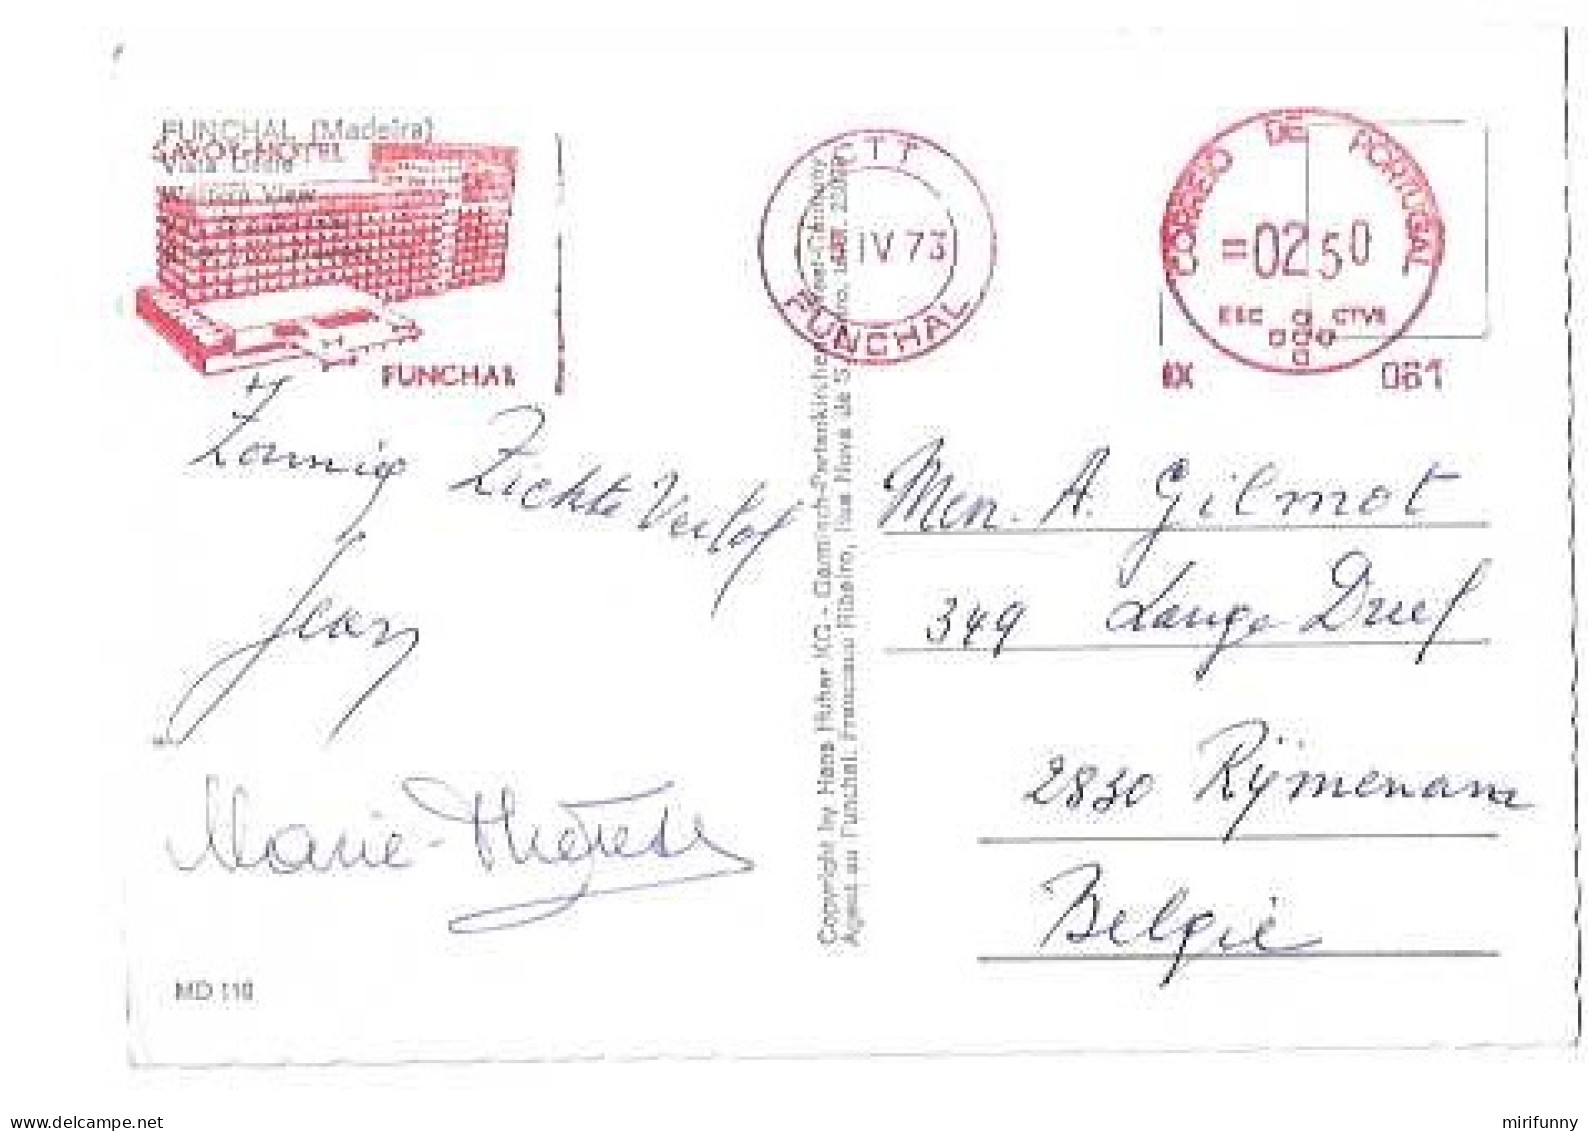 FUNCHAL (Madeira)
SAVOY-HOTEL
Vista Oeste
Western View
FUNCHAL
CTT
IV 73
FUNCHAL
CORREIO DE PORTUGAL
=02 50
ESC CTVS
061
Zonnig Zichte Verlof
Jean
Marie-Thérèse
MD 110
Copyright by Hans Huber KG - Garmisch-Partenkirchen
Agent au Funchal: Francisco Ribeiro, Rua Nova de S
Men. A. Gilmot
349 Lange Dreef
2830 Rijmenam
België
mirifunny